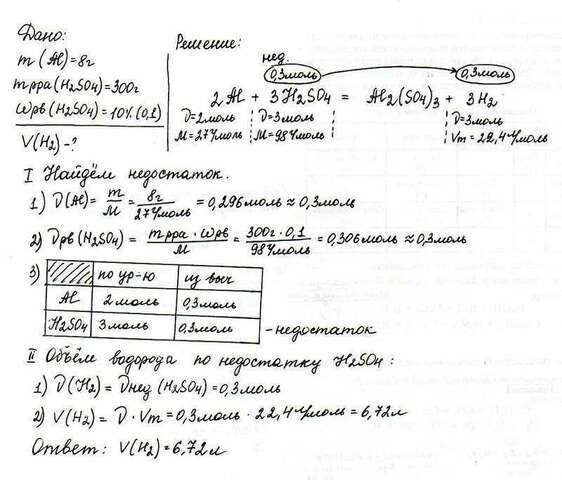 Дано:
m(Al)=8г
mp-ра(H2SO4)=300г
ωрв(H2SO4)=10%(0,1)
V(H2)-?
Решение:
нед.
0,3моль 0,3моль
2Al + 3H2SO4 = Al2(SO4)3 + 3H2
ν=2моль ν=3моль ν=3моль
M=27г/моль M=98г/моль Vm=22,4л/моль
I Найдём недостаток.
1) ν(Al)= m/M = 8г/27г/моль =0,296моль≈0,3моль
2) νрв(H2SO4)= mр-ра·ωрв/M = 300г·0,1/98г/моль =0,306моль≈0,3моль
3) по ур-ю из выч
Al 2моль 0,3моль
H2SO4 3моль 0,3моль -недостаток
II Объём водорода по недостатку H2SO4:
1) ν(H2)=νнед(H2SO4)=0,3моль
2) V(H2)=ν·Vm=0,3моль·22,4л/моль=6,72л
Ответ: V(H2)=6,72л